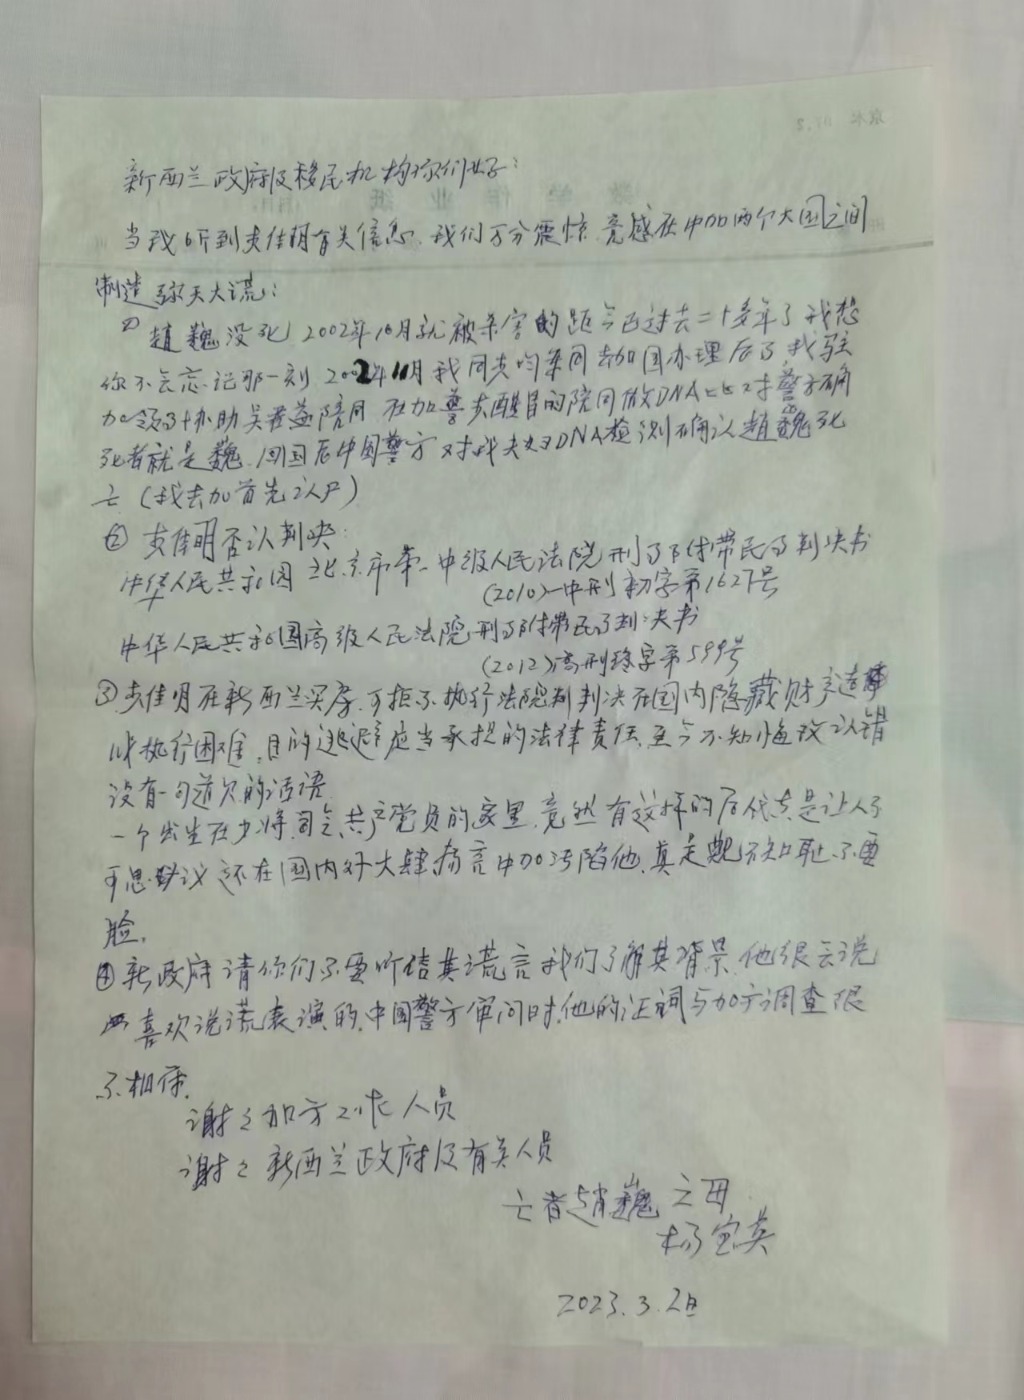 新西兰政府及移民机构你们好:
当我听到李佳明有关信息,我们万分震惊,竟感在中加两个大国之间
制造弥天大谎:
① 趙巍没死 2002年10月就被杀害的距今已过去二十多年了我想
你不会忘记那一刻 2002年11月我同李均来同去加国办理后事,我驻
加领事协助吴 陪同 在加警 的陪同做DNA比对警方确
死者就是巍.回国后中国警方对我夫妇DNA检测确认趙巍死
亡(我去加首先认尸)
② 李佳明否认判决:
中华人民共和国北京市第一中级人民法院刑事附带民事判决书
(2010)一中刑初字第1627号
中华人民共和国高级人民法院刑事附带民事判决书
(2012)高刑终字第599号
③李佳明在新西兰买房,可拒不执行法院判决在国内隐藏财产造
以执行困难,目的逃避应当承担的法律责任,至今不知悔改认错
没有一句道欠的话语.
一个出生在少将司令共产党员的家里,竟然有这样的后代真是让人不
可思议还在国内外大肆 言中加污陷他,真是 不知耻不要
脸.
④新政府请你们不要听信其谎言我们了解其背景,他很会说
喜欢说谎表演的,中国警方审问时,他的证词与加方调查很
不相符.
谢谢加方工作人员
谢谢新西兰政府及有关人员
亡者趙巍之母
杨宝英
2023.3.2日